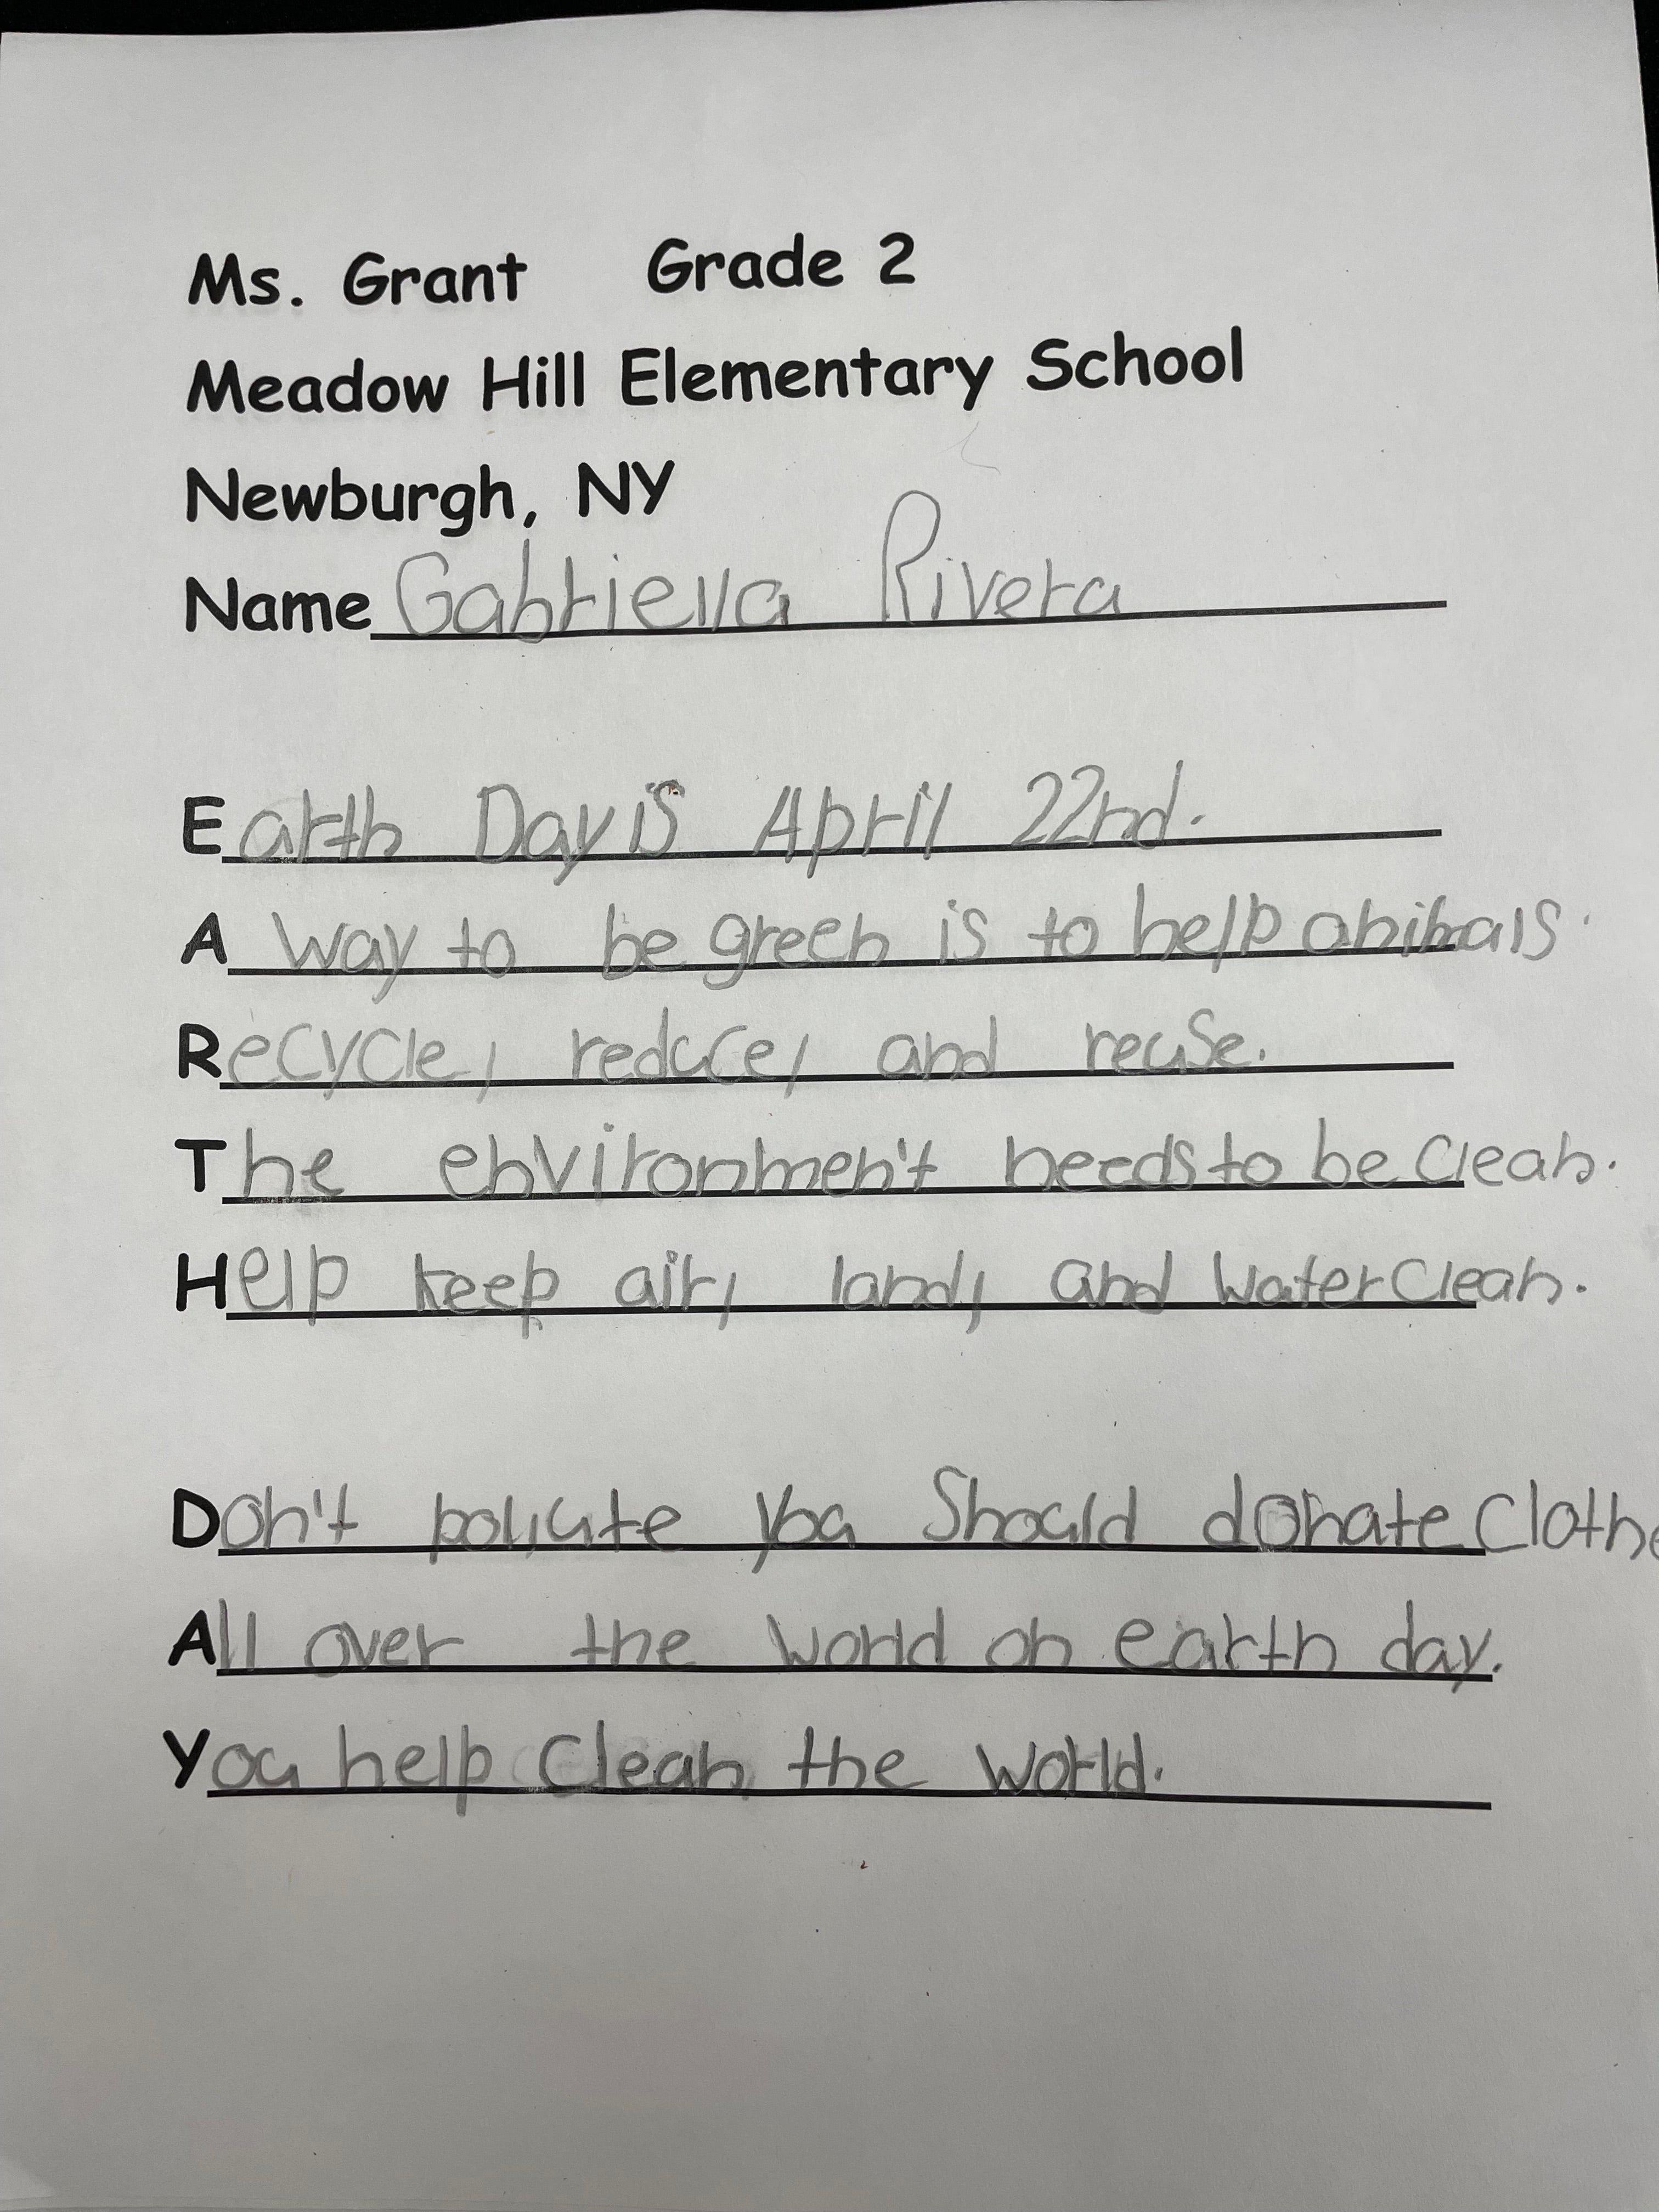 Ms. Grant Grade 2
Meadow Hill Elementary School
Newburgh, NY
Name Gabriella Rivera
Earth Day is April 22nd.
A way to be green is to help animals.
Recycle, reduce, and reuse.
The environmen't needs to be clean.
Help keep air, land, and water clean.
Don't pollute you Should donate Clothe
All over the world on earth day.
You help Clean the world.